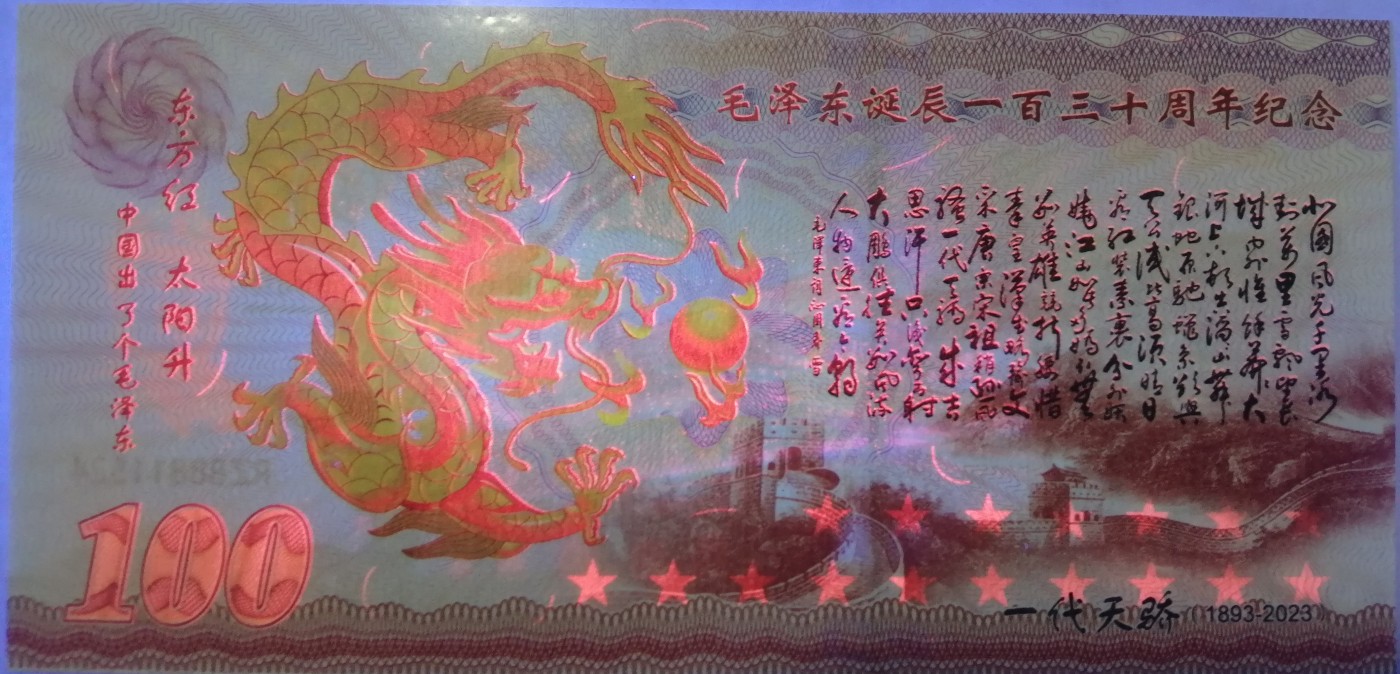 毛泽东诞辰一百三十周年纪念
东方红 太阳升
中国出了个毛泽东
北国风光千里冰
封万里雪飘望长
城内外惟余莽莽大
河上下顿失滔滔山舞
银蛇原驰蜡象欲与
天公试比高须晴日
看红装素裹分外妖
娆江山如此多娇引无
数英雄竞折腰惜
秦皇汉武略输文
采唐宗宋祖稍逊风
骚一代天骄成吉
思汗只识弯弓射
大雕俱往矣数风流
人物还看今朝
毛泽东词沁园春雪
100
一代天骄(1893-2023)